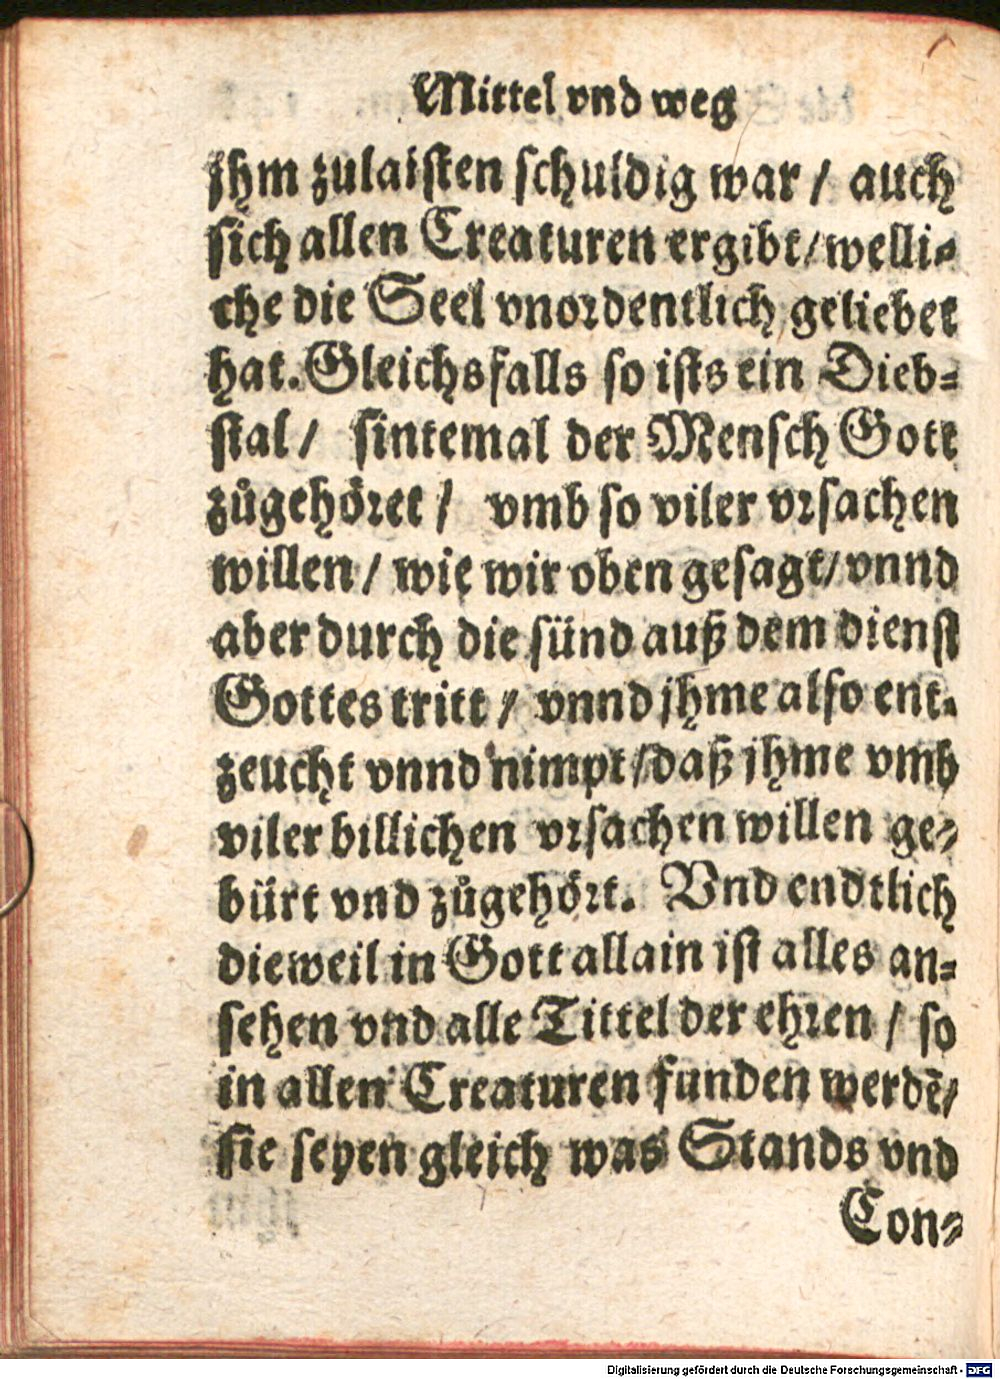 Mittel vnd weg
jhm zulaisten schuldig war / auch
sich allen Creaturen ergibt / welli-
che die Seel vnordentlich geliebet
hat. Gleichsfalls so ists ein Dieb-
stal / sintemal der Mensch Gott
zůgehöret / vmb so viler vrsachen
willen / wie wir oben gesagt / vnnd
aber durch die sünd auß dem dienst
Gottes tritt / vnnd jhme also ent-
zeucht vnnd nimpt / daß jhme vmb
viler billichen vrsachen willen ge-
bürt vnd zůgehört. Vnd endtlich
dieweil in Gott allain ist alles an-
sehen vnd alle Tittel der ehren / so
in allen Creaturen funden werdē /
sie seyen gleich was Stands vnd
Con-
Digitalisierung gefördert durch die Deutsche Forschungsgemeinschaft - DFG